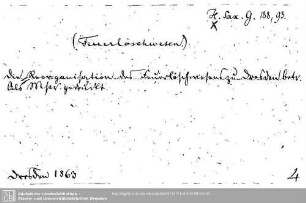 H. Sax. G. 188, 93.
X
(Feuerlöschwesen).
Die Reorganisation des Feuerlöschwesens zu Dresden betr.
Als Mscr. gedruckt.
Dresden 1863
4
Sächsische Landesbibliothek -
Staats- und Universitätsbibliothek Dresden